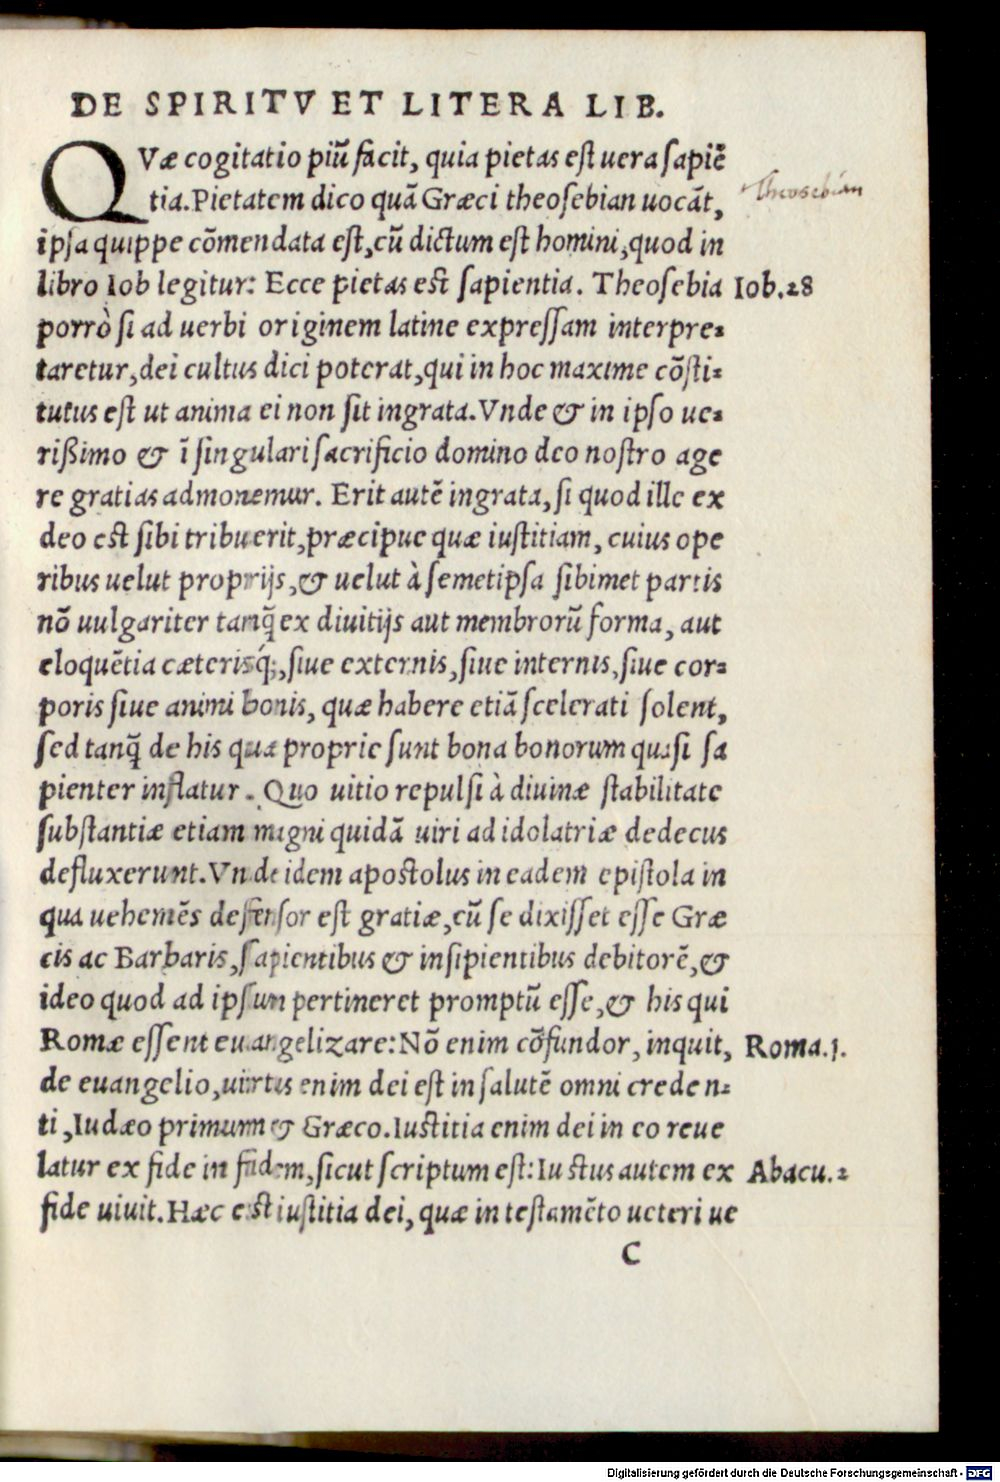 DE SPIRITV ET LITERA LIB.
QVæ cogitatio piũ facit, quia pietas est uera sapiẽ
tia. Pietatem dico quã Græci theosebian uocãt,
Theosebian
ipsa quippe cõmendata est, cũ dictum est homini, quod in
libro Iob legitur: Ecce pietas est sapientia. Theosebia
Iob.28
porrò si ad uerbi originem latine expressam interpre-
taretur, dei cultus dici poterat, qui in hoc maxime cõsti-
tutus est ut anima ei non sit ingrata. Vnde & in ipso ue-
rißimo & ĩ singulari sacrificio domino deo nostro age
re gratias admonemur. Erit autẽ ingrata, si quod ille ex
deo est sibi tribuerit, præcipue quæ iustitiam, cuius ope
ribus uelut proprijs, & uelut à semetipsa sibimet partis
nõ uulgariter tanq̃ ex diuitijs aut membrorũ forma, aut
eloquẽtia cæterisq́;, siue externis, siue internis, siue cor-
poris siue animi bonis, quæ habere etiã scelerati solent,
sed tanq̃ de his quæ proprie sunt bona bonorum quasi sa
pienter inflatur. Quo uitio repulsi à diuinæ stabilitate
substantiæ etiam magni quidã uiri ad idolatriæ dedecus
defluxerunt. Vnde idem apostolus in eadem epistola in
qua uehemẽs defensor est gratiæ, cũ se dixisset esse Græ
cis ac Barbaris, sapientibus & insipientibus debitorẽ, &
ideo quod ad ipsum pertineret promptũ esse, & his qui
Romæ essent euangelizare: Nõ enim cõfundor, inquit,
Roma.1.
de euangelio, uirtus enim dei est in salutẽ omni creden-
ti, Iudæo primum & Græco. Iustitia enim dei in eo reue
latur ex fide in fidem, sicut scriptum est: Iustus autem ex
Abacu.2
fide uiuit. Hæc est iustitia dei, quæ in testamẽto ueteri ue
C
Digitalisierung gefördert durch die Deutsche Forschungsgemeinschaft - DFG